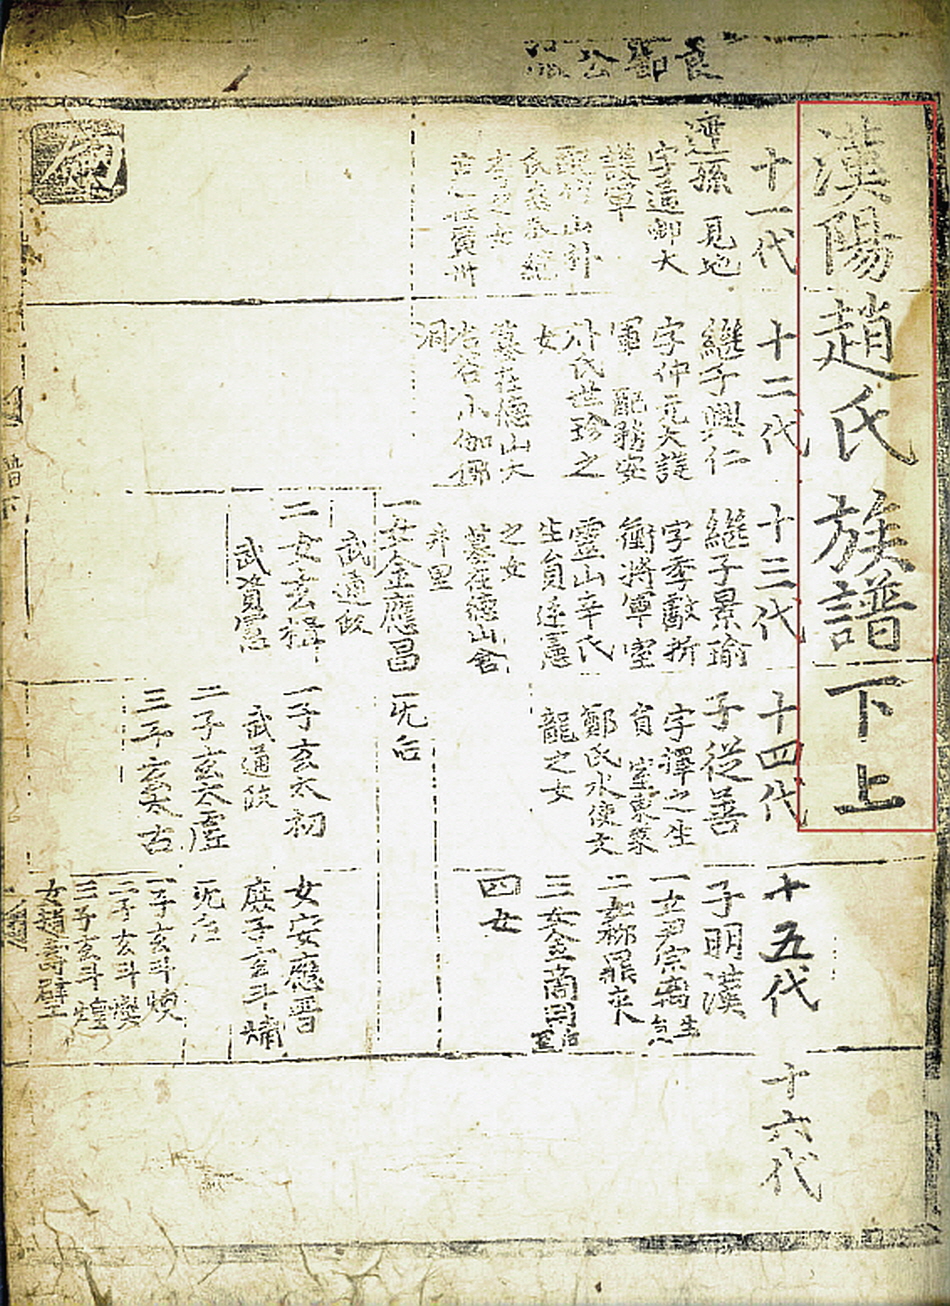 良節公派
漢陽趙氏族譜下上
十一代
十二代
十三代
十四代
十五代
十六代
遯孫 見地
字遥卿大
護軍
氏
李之女
繼子興仁
字仲元大護
軍 配務安
朴氏世珍之
女
墓在德山大
冶谷小伽倻
洞
繼子景瑜
字季獻折
衝將軍室
靈山辛氏
生員廷憲
之女
墓在德山舍
井里
一女金應昌
武通政
二女玄楫
武資憲
子從善
字擇之生
員 室東萊
鄭氏水使文
龍之女
一无后
一子玄太初
武通政
二子玄太虛
三子玄太古
子明漢
一女尹宗萬
生員
三女金商
四女
女安應晋
庶子玄斗
无后
一子玄斗煥
二子玄斗燮
三子玄斗煌
女趙壽壁